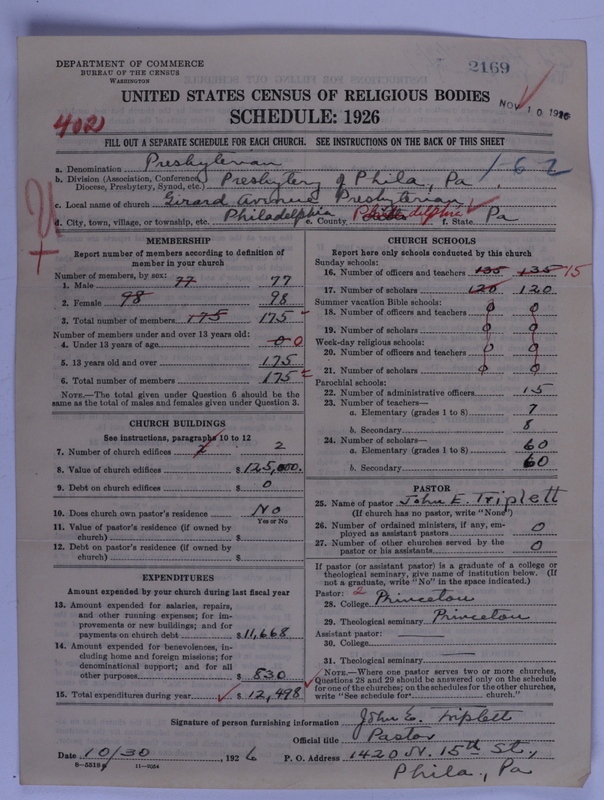 DEPARTMENT OF COMMERCE
BUREAU OF THE CENSUS
WASHINGTON
2169
UNITED STATES CENSUS OF RELIGIOUS BODIES
NOV 10 1926
SCHEDULE: 1926
402
FILL OUT A SEPARATE SCHEDULE FOR EACH CHURCH. SEE INSTRUCTIONS ON THE BACK OF THIS SHEET
a. Denomination Presbyterian
162
b. Division (Association, Conference, Diocese, Presbytery, Synod, etc.) Presbytery of Phila., Pa.
c. Local name of church Girard Avenue Presbyterian
d. City, town, village, or township, etc. Philadelphia e. County Philadelphia f. State Pa
MEMBERSHIP
Report number of members according to definition of
member in your church
Number of members, by sex:
1. Male 77 77
2. Female 98 98
3. Total number of members 175 175
Number of members under and over 13 years old:
4. Under 13 years of age 0 0
5. 13 years old and over 175
6. Total number of members 175
NOTE.—The total given under Question 6 should be
same as the total of males and females given under Question 3.
CHURCH BUILDINGS
See instructions, paragraphs 10 to 12
7. Number of church edifices 2 2
8. Value of church edifices $125,000.
9. Debt on church edifices $ 0
10. Does church own pastor's residence No
Yes or No
11. Value of pastor's residence (if owned by
church) $
12. Debt on pastor's residence (if owned by
church) $
EXPENDITURES
Amount expended by your church during last fiscal year
13. Amount expended for salaries, repairs,
and other running expenses; for im-
provements or new buildings; and for
payments on church debt $11,668
14. Amount expended for benevolences, in-
cluding home and foreign missions; for
denominational support; and for all
other purposes $ 830
15. Total expenditures during year $ 12,498
CHURCH SCHOOLS
Report here only schools conducted by this church
Sunday schools:
16. Number of officers and teachers 135 135 15
17. Number of scholars 120 120
Summer vacation Bible schools:
18. Number of officers and teachers 0 0
19. Number of scholars 0 0
Week-day religious schools:
20. Number of officers and teachers 0 0
21. Number of scholars 0 0
Parochial schools:
22. Number of administrative officers 15
23. Number of teachers—
a. Elementary (grades 1 to 8) 7
b. Secondary 8
24. Number of scholars—
a. Elementary (grades 1 to 8) 60
b. Secondary 60
PASTOR
25. Name of pastor John E. Triplett
(If church has no pastor, write "None")
26. Number of ordained ministers, if any, em-
ployed as assistant pastors 0
27. Number of other churches served by the
pastor or his assistants 0
If pastor (or assistant pastor) is a graduate of a college or
theological seminary, give name of institution below. (If
not a graduate, write "No" in the space indicated.)
Pastor: 2
28. College Princeton
29. Theological seminary Princeton
Assistant pastor:
30. College
31. Theological seminary
NOTE.—Where one pastor serves two or more churches,
Questions 28 and 29 should be answered only on the schedule
for one of the churches; on the schedules for the other churches,
write "See schedule for church."
Signature of person furnishing information John E. Triplett
Official title Pastor
Date 10/30, 1926 P. O. Address 1420 N. 15th St.,
8—5518a 11—9024
Phila., Pa